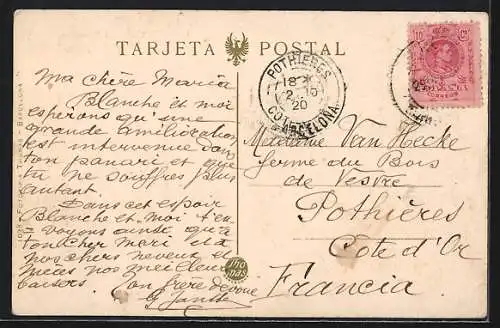 TARJETA POSTAL
Ma chère Maria
Blanche et moi
esperons qu'une
grande amélioration
est intervenue dans
ton panari et que
tu ne souffres plus
autant.
Dans cet espoir
Blanche et moi t'en-
voyons ainsi qu'à
ton cher mari et à
nos chers neveux et
nieces nos meilleurs
baisers.
Ton frère dévoué
POTHIERES
18
2-10
20
COTE-D'OR
BARCELONA
10 Cs 10
ESPAÑA
Madame Van Hecke
ferme du Bois
de Vestre
Pothières
Cote d'Or
Francia
Tho
mas
BARCELONA